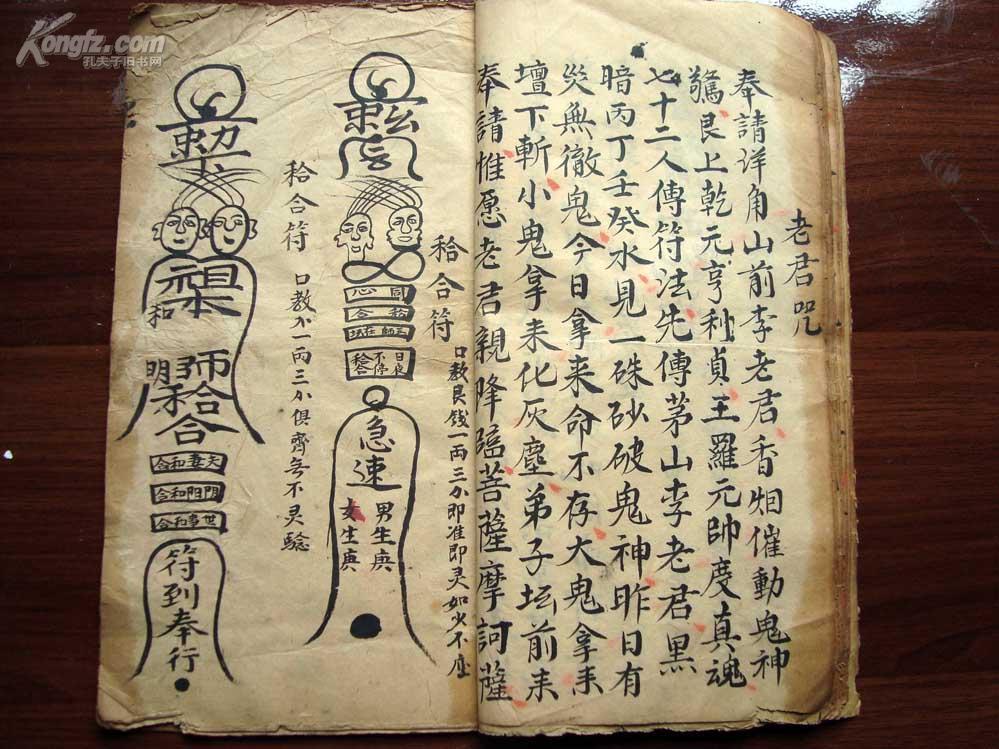 老君咒
奉請洋角山前李老君香烟催動鬼神
驚艮上乾元亨利貞王羅元帥度真魂
七十二人傳符法先傳茅山李老君黑
暗丙丁壬癸水見一硃砂破鬼神昨日有
災無徹鬼今日拿来命不存大鬼拿来
壇下斬小鬼拿来化灰塵弟子坛前来
奉請惟愿老君親降臨菩薩摩訶薩
和合符
口教艮钱一两三分即准即灵如少不应
同心
和合
日夜不停
急速
男生庚
女生庚
和合符
口教分一两三分俱齊無不灵驗
和
明
師
和合
夫妻和合
阴阳和合
世事和合
符到奉行
Kongfz.com
孔夫子旧书网